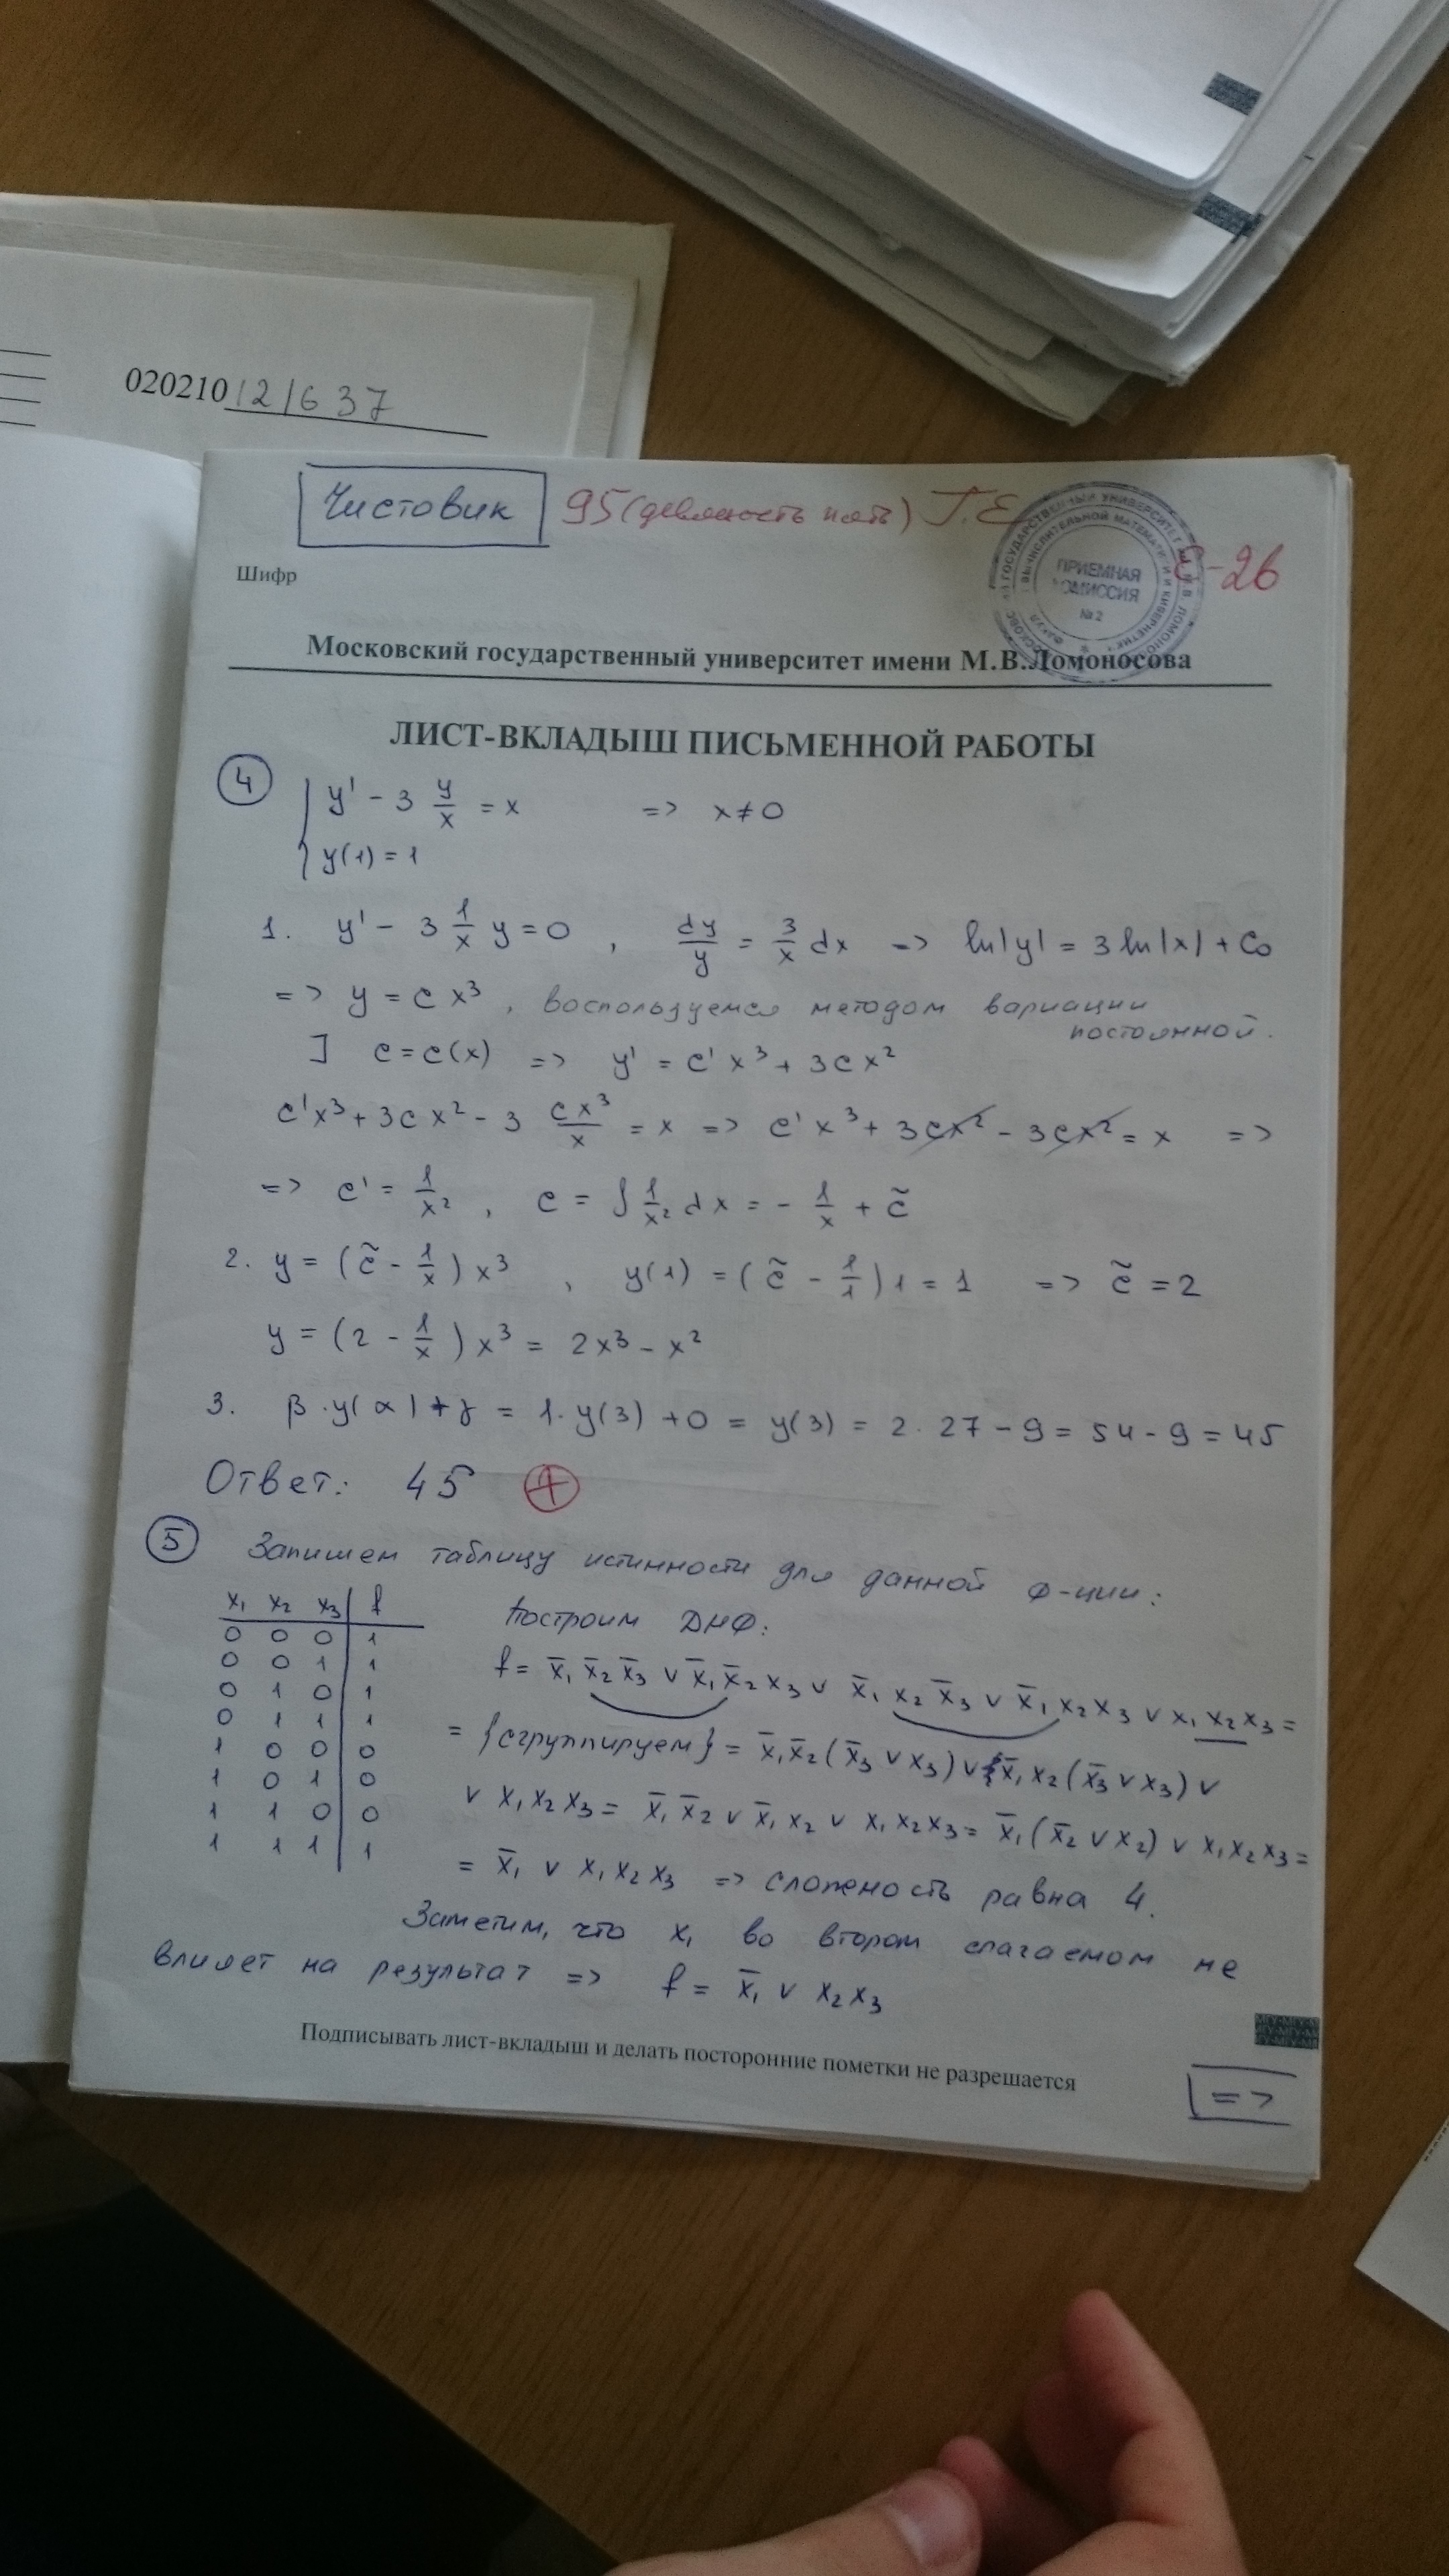 020210 121637
Чистовик 95 (девяносто пять)
Е-26
Шифр
ПРИЕМНАЯ
КОМИССИЯ
№ 2
Московский государственный университет имени М.В.Ломоносова
ЛИСТ-ВКЛАДЫШ ПИСЬМЕННОЙ РАБОТЫ
4 { y' - 3 y/x = x => x ≠ 0
y(1) = 1
1. y' - 3 1/x y = 0 , dy/y = 3/x dx => ln|y| = 3 ln|x| + C₀
=> y = c x³ , воспользуемся методом вариации
постоянной.
] c = c(x) => y' = c' x³ + 3c x²
c'x³ + 3c x² - 3 cx³/x = x => c' x³ + 3cx² - 3cx² = x =>
=> c' = 1/x² , c = ∫ 1/x² dx = - 1/x + c̃
2. y = (c̃ - 1/x) x³ , y(1) = (c̃ - 1/1) 1 = 1 => c̃ = 2
y = (2 - 1/x) x³ = 2x³ - x²
3. β · y(α) + γ = 1 · y(3) + 0 = y(3) = 2 · 27 - 9 = 54 - 9 = 45
Ответ: 45 +
5 Запишем таблицу истинности для данной ф-ции:
x₁ x₂ x₃ | f
0 0 0 | 1
0 0 1 | 1
0 1 0 | 1
0 1 1 | 1
1 0 0 | 0
1 0 1 | 0
1 1 0 | 0
1 1 1 | 1
Построим ДНФ:
f = x̄₁ x̄₂ x̄₃ ∨ x̄₁ x̄₂ x₃ ∨ x̄₁ x₂ x̄₃ ∨ x̄₁ x₂ x₃ ∨ x₁ x₂ x₃ =
= {сгруппируем} = x̄₁ x̄₂ (x̄₃ ∨ x₃) ∨ x̄₁ x₂ (x̄₃ ∨ x₃) ∨
∨ x₁ x₂ x₃ = x̄₁ x̄₂ ∨ x̄₁ x₂ ∨ x₁ x₂ x₃ = x̄₁ (x̄₂ ∨ x₂) ∨ x₁ x₂ x₃ =
= x̄₁ ∨ x₁ x₂ x₃ => сложность равна 4.
Заметим, что x₁ во втором слагаемом не
влияет на результат => f = x̄₁ ∨ x₂ x₃
Подписывать лист-вкладыш и делать посторонние пометки не разрешается
=>